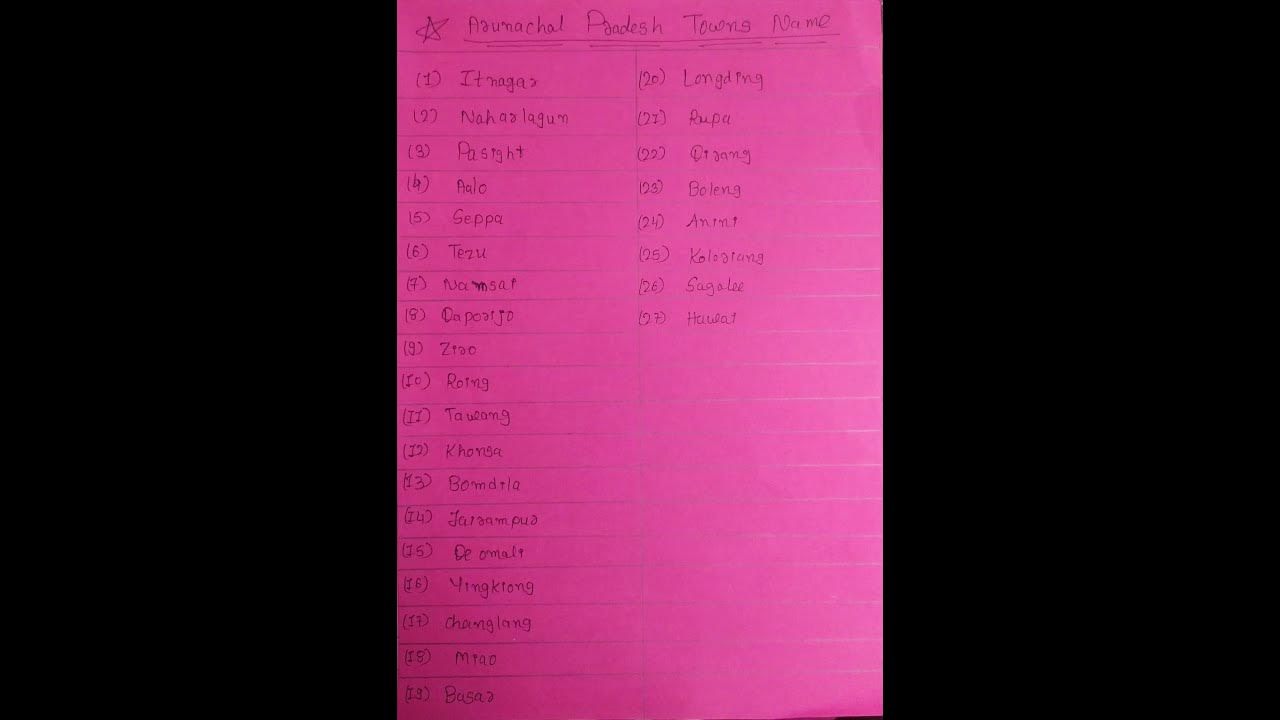 ☆ Arunachal Pradesh Towns Name
(1) Itnagar
(2) Naharlagun
(3) Pasight
(4) Aalo
(5) Seppa
(6) Tezu
(7) Namsai
(8) Daporijo
(9) Ziro
(10) Roing
(11) Tawang
(12) Khonsa
(13) Bomdila
(14) Jairampur
(15) De omali
(16) Yingkiong
(17) Changlang
(18) Miao
(19) Basar
(20) Longding
(21) Rupa
(22) Dirang
(23) Boleng
(24) Anini
(25) Koloriang
(26) Sagalee
(27) Hawai